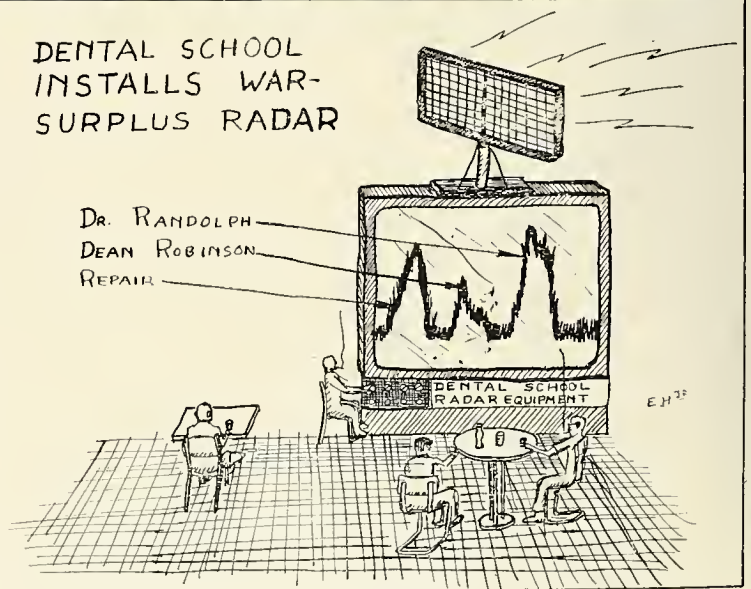 DENTAL SCHOOL
INSTALLS WAR-
SURPLUS RADAR
DR. RANDOLPH
DEAN ROBINSON
REPAIR
DENTAL SCHOOL
RADAR EQUIPMENT
EHJR